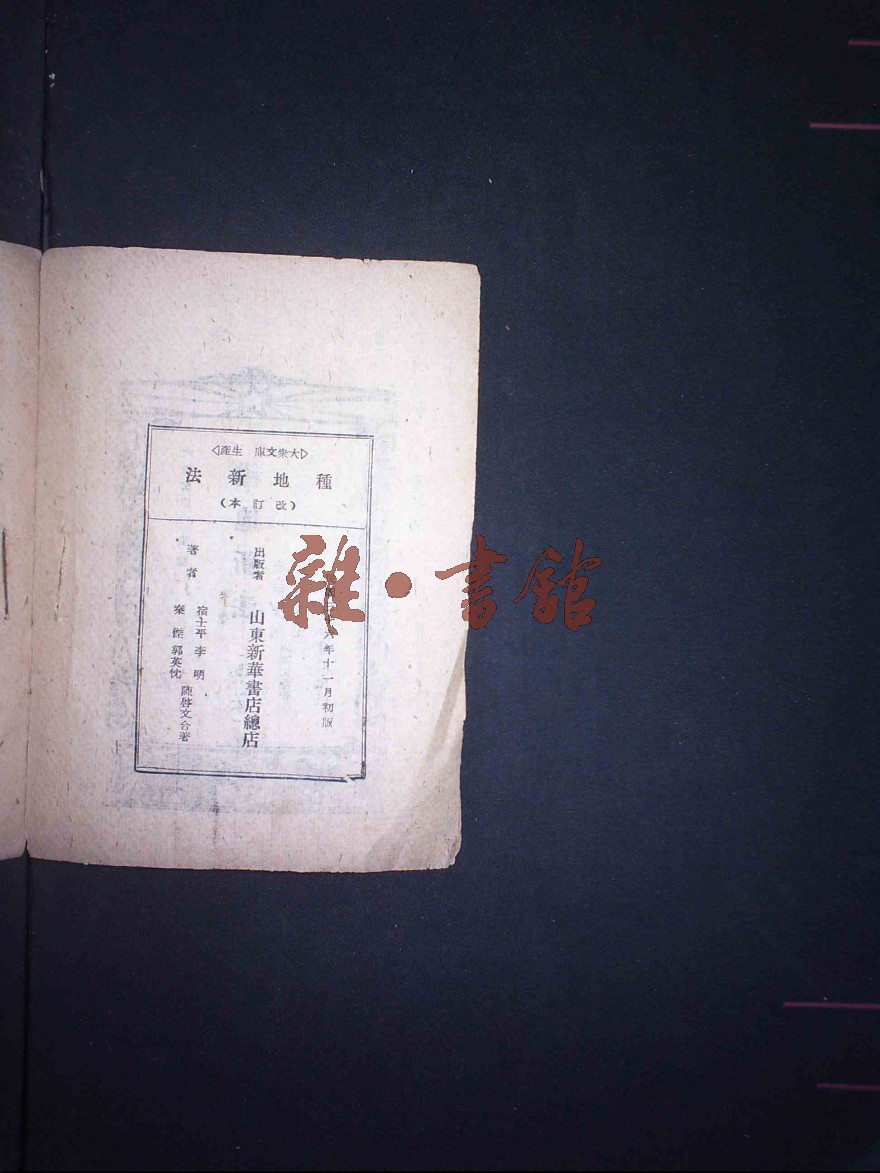 ▷大衆文庫 生產◁
種地新法
(改訂本)
六年十一月初版
出版者 山東新華書店總店
著者
宿士平 李明 陳啓文合著
秦傑 郭英忱
雜·書館